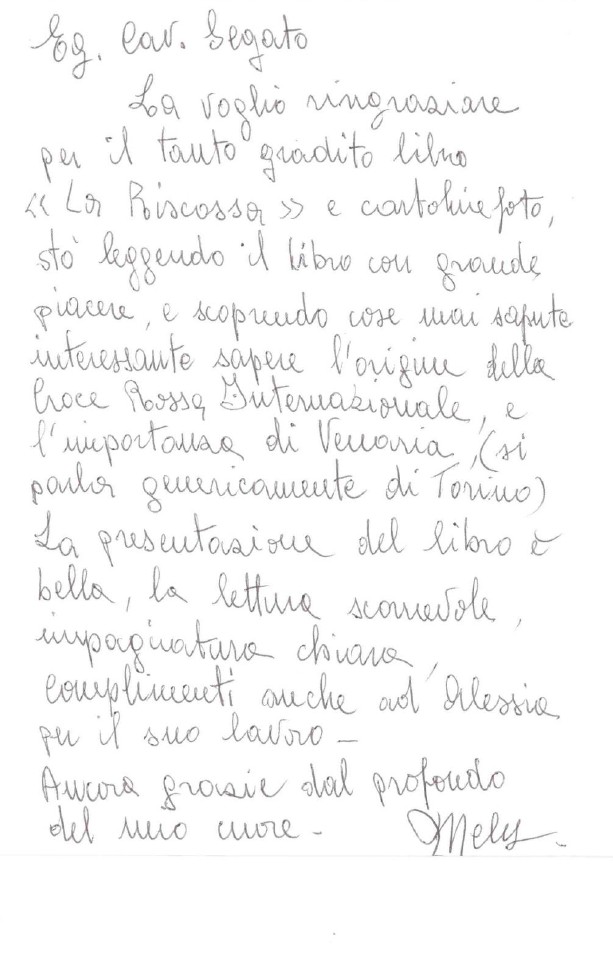 Eg. Cav. Segato
La voglio ringraziare
per il tanto gradito libro
« La Riscossa » e cartoline foto,
sto leggendo il libro con grande
piacere, e scoprendo cose mai sapute
interessante sapere l'origine della
Croce Rossa Internazionale, e
l'importanza di Venaria, (si
parla genericamente di Torino)
La presentazione del libro è
bella, la lettura scorrevole,
impaginatura chiara,
complimenti anche ad Alessia
per il suo lavoro –
Ancora grazie dal profondo
del mio cuore – Mely